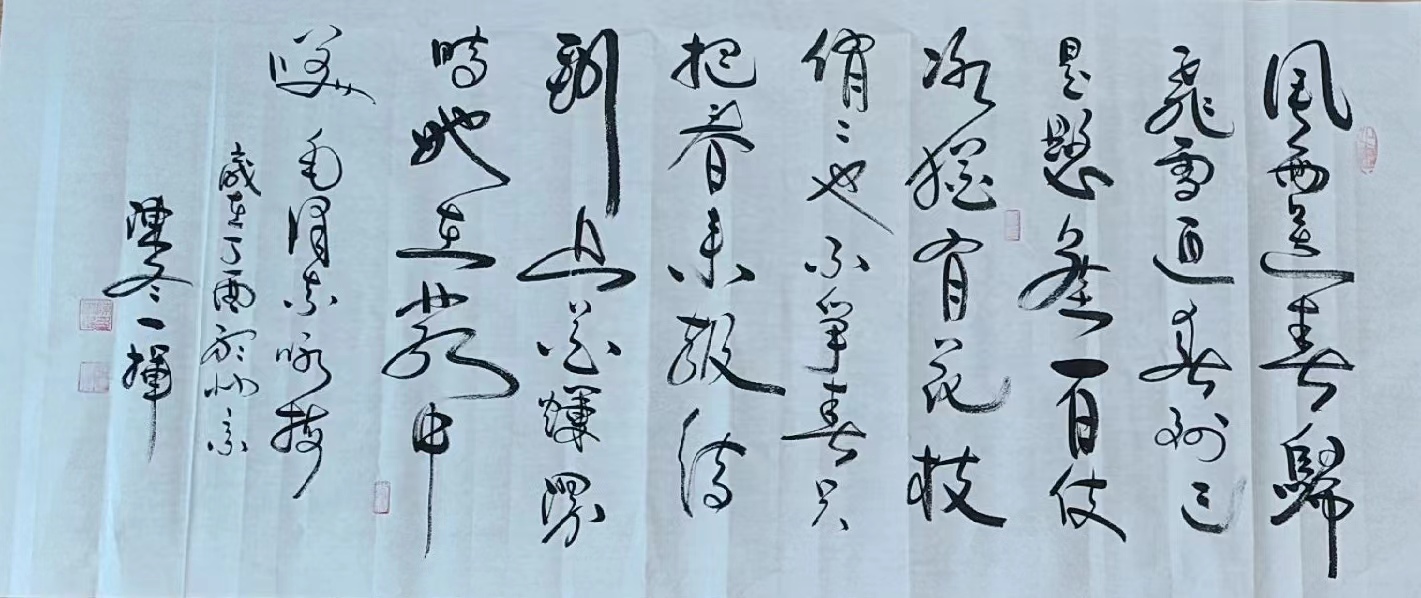 風雨送春歸
飛雪迎春到已
是懸崖百丈
冰猶有花枝
俏〻也不爭春只
把春來報待
到山花爛漫
時她在叢中
笑 毛澤東詠梅
歲在丁酉於北京
陳冬一揮